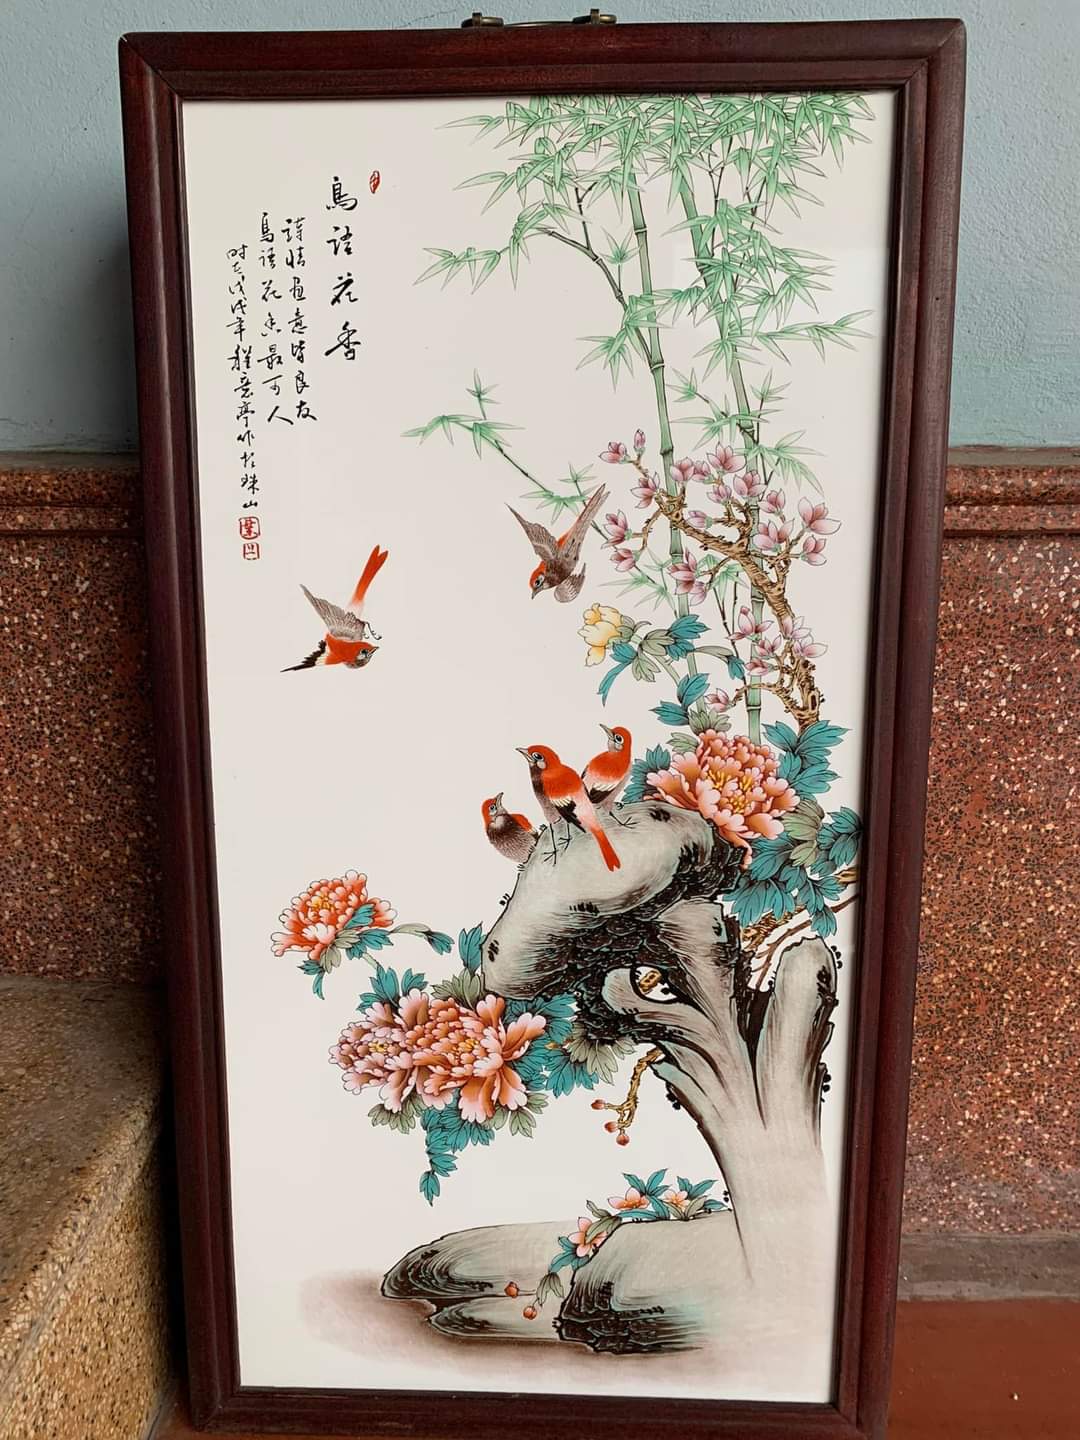 鳥語花香
詩情畫意皆良友
鳥語花香最可人
时在戊戌年程意亭作於珠山